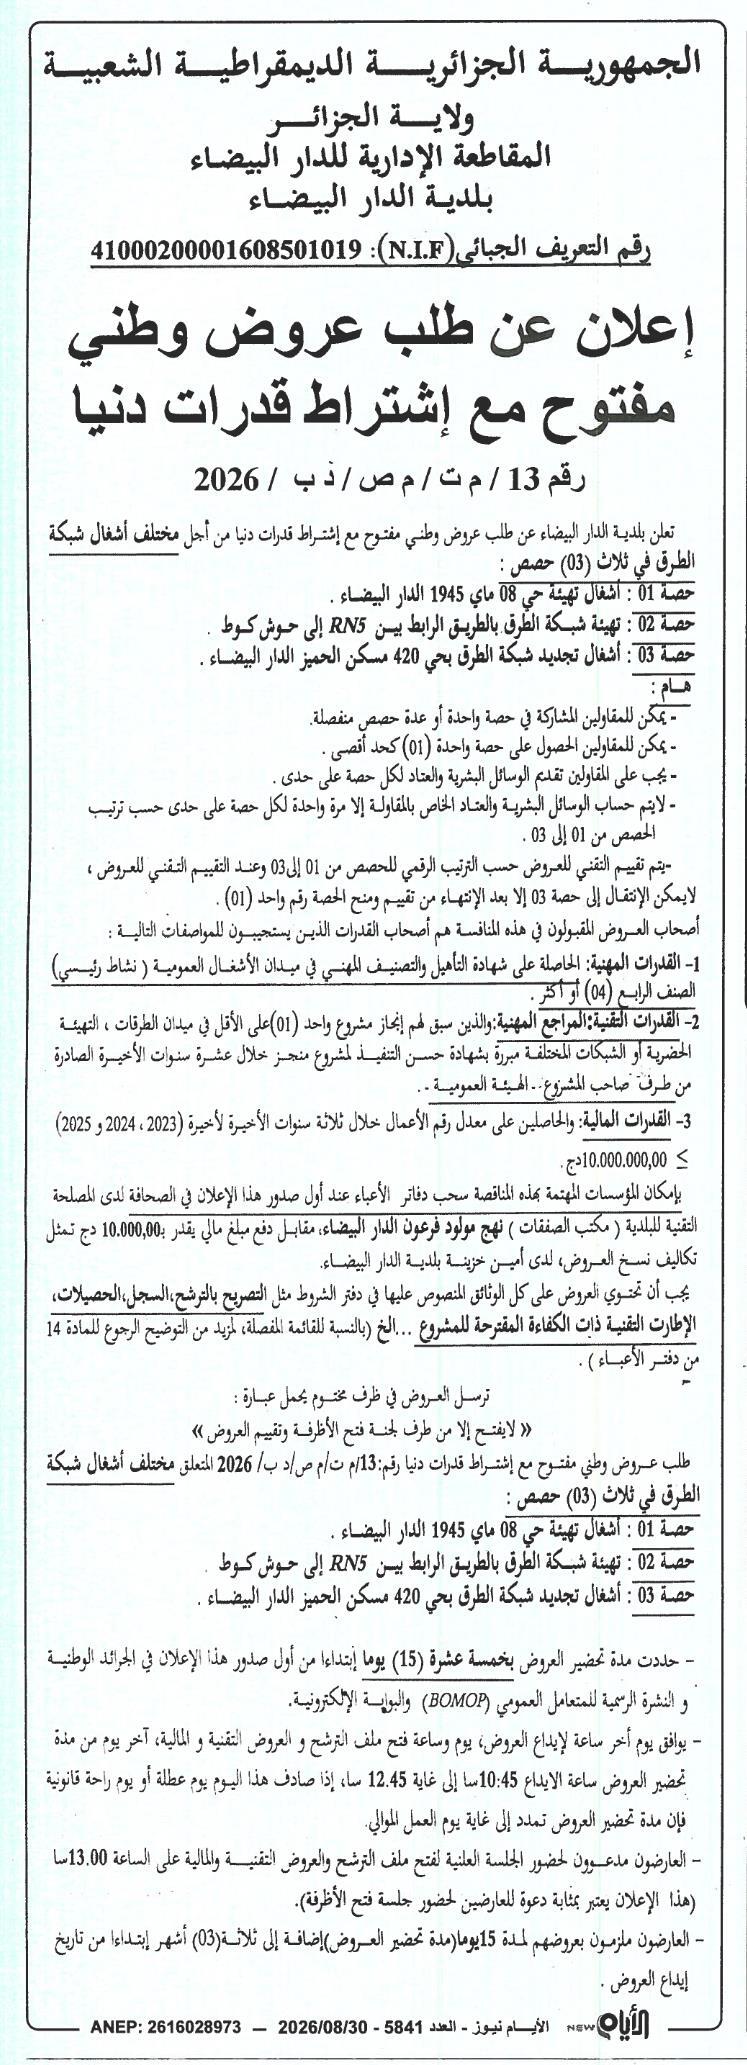 الجمهورية الجزائرية الديمقراطية الشعبية
ولاية الجزائر
المقاطعة الإدارية للدار البيضاء
بلدية الدار البيضاء
رقم التعريف الجبائي(N.I.F): 41000200001608501019
إعلان عن طلب عروض وطني
مفتوح مع إشتراط قدرات دنيا
رقم 13 / م ت / م ص / ذ ب / 2026
تعلن بلدية الدار البيضاء عن طلب عروض وطني مفتوح مع إشتراط قدرات دنيا من أجل مختلف أشغال شبكة
الطرق في ثلاث (03) حصص :
حصة 01 : أشغال تهيئة حي 08 ماي 1945 الدار البيضاء .
حصة 02 : تهيئة شبكة الطرق بالطريق الرابط بين RN5 إلى حوش كوط .
حصة 03 : أشغال تجديد شبكة الطرق بحي 420 مسكن الحميز الدار البيضاء .
هام :
- يمكن للمقاولين المشاركة في حصة واحدة أو عدة حصص منفصلة.
- يمكن للمقاولين الحصول على حصة واحدة (01) كحد أقصى .
- يجب على المقاولين تقديم الوسائل البشرية والعتاد لكل حصة على حدى .
- لايتم حساب الوسائل البشرية والعتاد الخاص بالمقاولة إلا مرة واحدة لكل حصة على حدى حسب ترتيب
الحصص من 01 إلى 03 .
-يتم تقييم التقني للعروض حسب الترتيب الرقمي للحصص من 01 إلى03 وعند التقييم التقني للعروض ،
لايمكن الإنتقال إلى حصة 03 إلا بعد الإنتهاء من تقييم ومنح الحصة رقم واحد (01) .
أصحاب العروض المقبولون في هذه المنافسة هم أصحاب القدرات الذين يستجيبون للمواصفات التالية :
1- القدرات المهنية: الحاصلة على شهادة التأهيل والتصنيف المهني في ميدان الأشغال العمومية ( نشاط رئيسي)
الصنف الرابع (04) أو أكثر .
2- القدرات التقنية:المراجع المهنية:والذين سبق لهم إنجاز مشروع واحد (01)على الأقل في ميدان الطرقات ، التهيئة
الحضرية أو الشبكات المختلفة مبررة بشهادة حسن التنفيذ لمشروع منجز خلال عشرة سنوات الأخيرة الصادرة
من طرف صاحب المشروع- الهيئة العمومية -.
3- القدرات المالية: والحاصلين على معدل رقم الأعمال خلال ثلاثة سنوات الأخيرة لأخيرة (2023 ، 2024 و 2025)
≥ 10.000.000,00دج.
بإمكان المؤسسات المهتمة بهذه المناقصة سحب دفاتر الأعباء عند أول صدور هذا الإعلان في الصحافة لدى المصلحة
التقنية للبلدية ( مكتب الصفقات ) نهج مولود فرعون الدار البيضاء، مقابل دفع مبلغ مالي يقدر بـ10.000,00 دج تمثل
تكاليف نسخ العروض، لدى أمين خزينة بلدية الدار البيضاء.
يجب أن تحتوي العروض على كل الوثائق المنصوص عليها في دفتر الشروط مثل التصريح بالترشح،السجل،الحصيلات،
الإطارت التقنية ذات الكفاءة المقترحة للمشروع ...الخ (بالنسبة للقائمة المفصلة، لمزيد من التوضيح الرجوع للمادة 14
من دفتر الأعباء ) .
ترسل العروض في ظرف مختوم يحمل عبارة :
« لايفتح إلا من طرف لجنة فتح الأظرفة وتقييم العروض »
طلب عروض وطني مفتوح مع إشتراط قدرات دنيا رقم:13/م ت/م ص/د ب/ 2026 المتعلق مختلف أشغال شبكة
الطرق في ثلاث (03) حصص :
حصة 01 : أشغال تهيئة حي 08 ماي 1945 الدار البيضاء .
حصة 02 : تهيئة شبكة الطرق بالطريق الرابط بين RN5 إلى حوش كوط .
حصة 03 : أشغال تجديد شبكة الطرق بحي 420 مسكن الحميز الدار البيضاء .
- حددت مدة تحضير العروض بخمسة عشرة (15) يوما إبتداءا من أول صدور هذا الإعلان في الجرائد الوطنية
و النشرة الرسمية للمتعامل العمومي (BOMOP) والبوابة الإلكترونية.
- يوافق يوم أخر ساعة لإيداع العروض، يوم وساعة فتح ملف الترشح و العروض التقنية و المالية، آخر يوم من مدة
تحضير العروض ساعة الايداع 10:45سا إلى غاية 12.45 سا، إذا صادف هذا اليوم يوم عطلة أو يوم راحة قانونية
فإن مدة تحضير العروض تمدد إلى غاية يوم العمل الموالي.
- العارضون مدعوون لحضور الجلسة العلنية لفتح ملف الترشح والعروض التقنية والمالية على الساعة 13.00سا
(هذا الإعلان يعتبر بمثابة دعوة للعارضين لحضور جلسة فتح الأظرفة).
- العارضون ملزمون بعروضهم لمدة 15يوما(مدة تحضير العروض)إضافة إلى ثلاثة(03) أشهر إبتداءا من تاريخ
إيداع العروض .
الأيام NEW الأيام نيوز - العدد 5841 - 2026/08/30 — ANEP: 2616028973